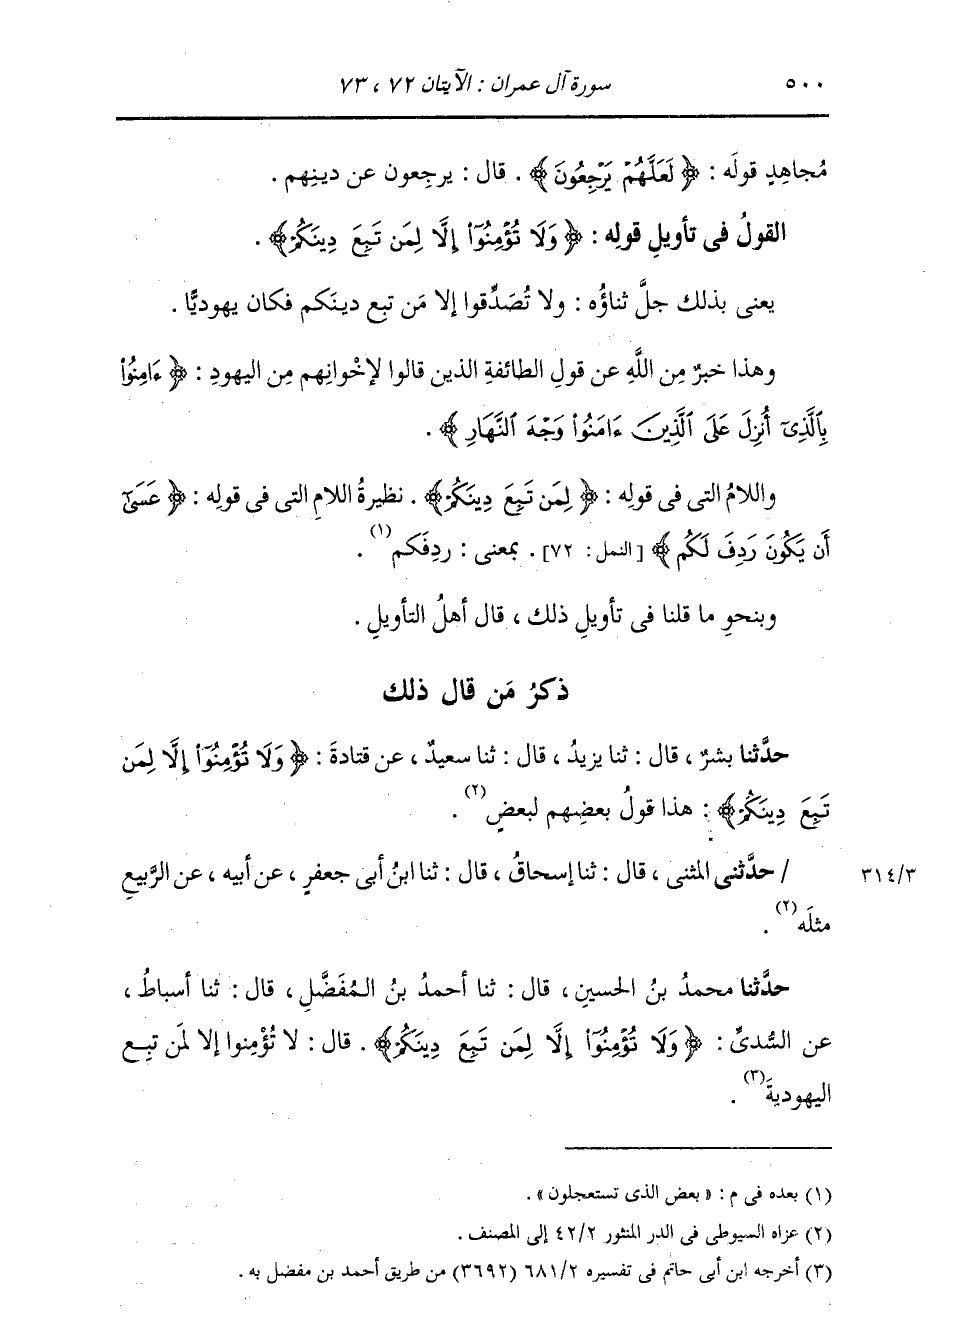 ٥٠٠ سورة آل عمران : الآيتان ٧٢ ، ٧٣
مُجاهِدٍ قولَه : ﴿ لَعَلَّهُمْ يَرْجِعُونَ ﴾ . قال : يرجِعون عن دينِهم .
القولُ فى تأويلِ قولِه : ﴿ وَلَا تُؤْمِنُوٓا۟ إِلَّا لِمَن تَبِعَ دِينَكُمْ ﴾ .
يعنى بذلك جلَّ ثناؤُه : ولا تُصَدِّقوا إلا مَن تبِع دينَكم فكان يهوديًّا .
وهذا خبرٌ مِن اللَّهِ عن قولِ الطائفةِ الذين قالوا لإخْوانِهم مِن اليهودِ : ﴿ ءَامِنُوا۟
بِٱلَّذِىٓ أُنزِلَ عَلَى ٱلَّذِينَ ءَامَنُوا۟ وَجْهَ ٱلنَّهَارِ ﴾ .
واللامُ التى فى قولِه : ﴿ لِمَن تَبِعَ دِينَكُمْ ﴾ . نظيرةُ اللامِ التى فى قولِه : ﴿ عَسَىٰٓ
أَن يَكُونَ رَدِفَ لَكُم ﴾ [ النمل : ٧٢] . بمعنى : ردِفَكم(١) .
وبنحوِ ما قلنا فى تأويلِ ذلك ، قال أهلُ التأويلِ .
ذكرُ مَن قال ذلك
حدَّثنا بشرٌ ، قال : ثنا يزيدُ ، قال : ثنا سعيدٌ ، عن قتادةَ : ﴿ وَلَا تُؤْمِنُوٓا۟ إِلَّا لِمَن
تَبِعَ دِينَكُمْ ﴾ : هذا قولُ بعضِهم لبعضٍ(٢) .
/ حدَّثنى المثنى ، قال : ثنا إسحاقُ ، قال : ثنا ابنُ أبى جعفرٍ ، عن أبيه ، عن الرَّبيعِ ٣١٤/٣
مثلَه(٢) .
حدَّثنا محمدُ بنُ الحسينِ ، قال : ثنا أحمدُ بنُ المُفَضَّلِ ، قال : ثنا أسباطُ ،
عن السُّدىِّ : ﴿ وَلَا تُؤْمِنُوٓا۟ إِلَّا لِمَن تَبِعَ دِينَكُمْ ﴾ . قال : لا تُؤْمِنوا إلا لمَن تبِع
اليهوديةَ(٣) .
(١) بعده فى م : « بعض الذى تستعجلون » .
(٢) عزاه السيوطى فى الدر المنثور ٤٢/٢ إلى المصنف .
(٣) أخرجه ابن أبى حاتم فى تفسيره ٦٨١/٢ (٣٦٩٢) من طريق أحمد بن مفضل به .